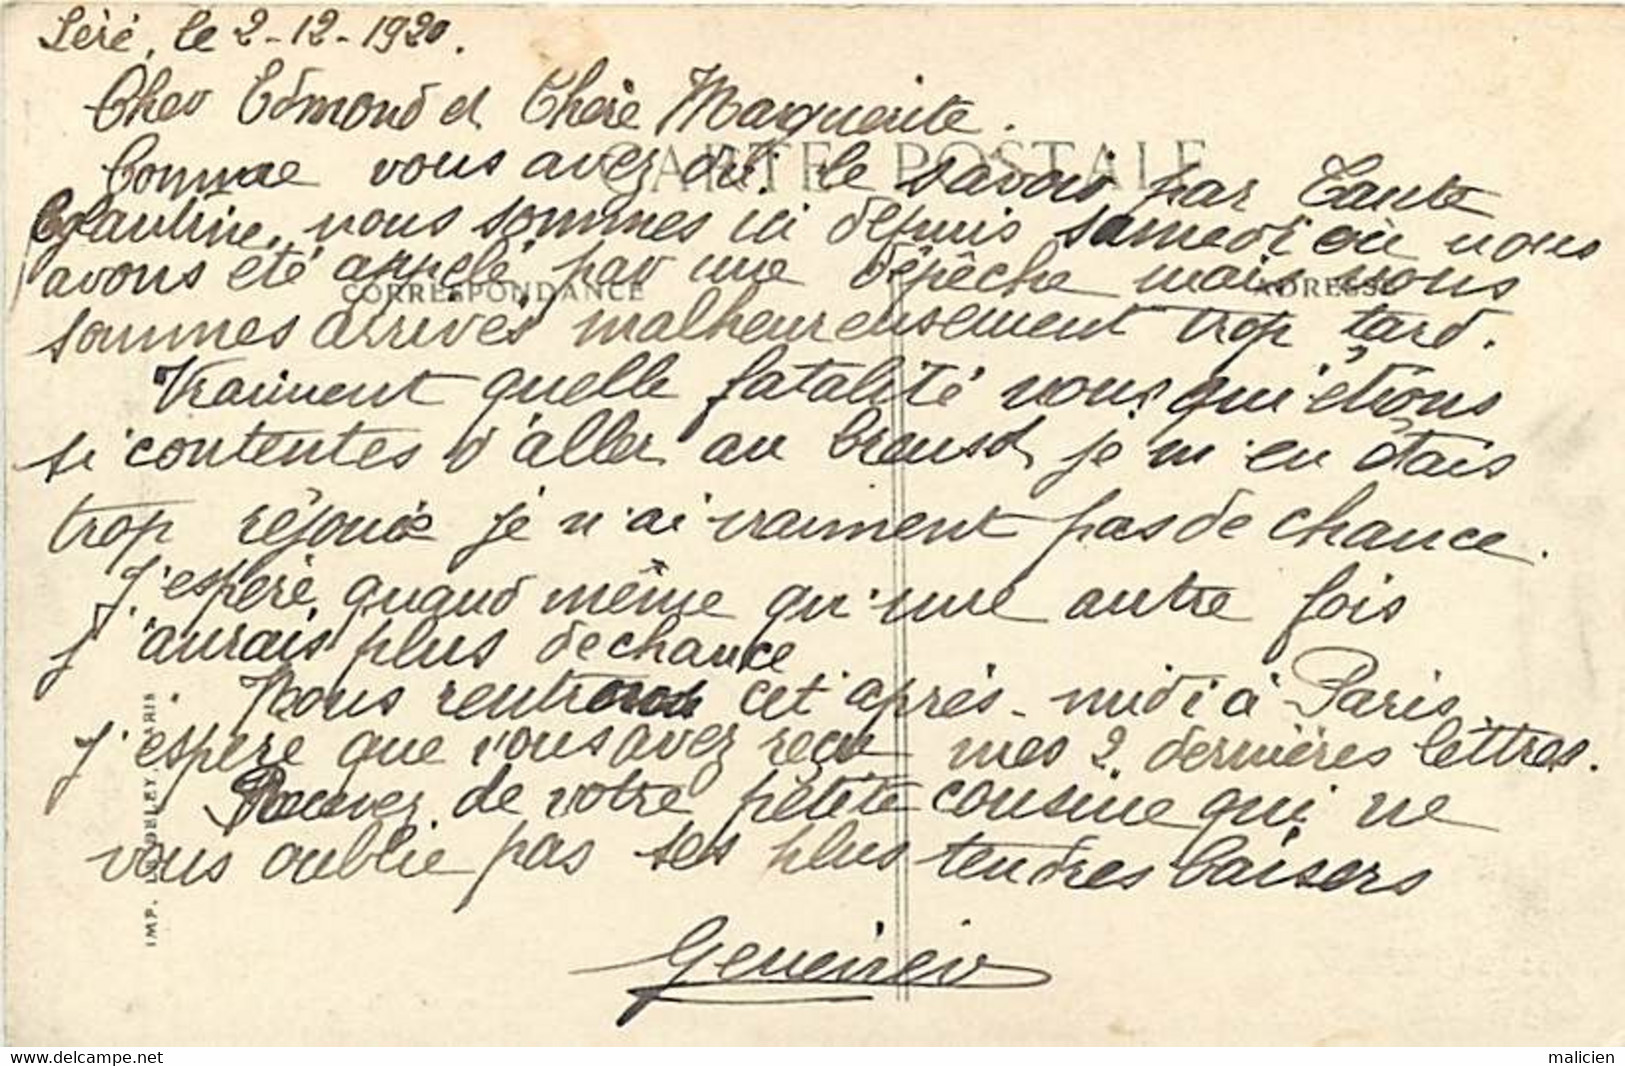 Léré, le 2-12-1920.
Cher Edmond et Chère Marguerite.
CARTE POSTALE
Comme vous avez dû le savoir par Tante
nous sommes ici depuis samedi où nous
avons été appelé par une dépêche mais nous
CORRESPONDANCE
ADRESSE
sommes arrivés malheureusement trop tard.
Vraiment quelle fatalité nous qui étions
si contentes d'aller au je m'en étais
trop réjouie je n'ai vraiment pas de chance.
J'espère quand même qu'une autre fois
j'aurais plus de chance
Nous rentrons cet après-midi à Paris
J'espère que vous avez reçu mes 2 dernières lettres.
Recevez de votre petite cousine qui ne
vous oublie pas ses plus tendres baisers
Geneviève
IMP. PARIS
delcampe.net
malicien